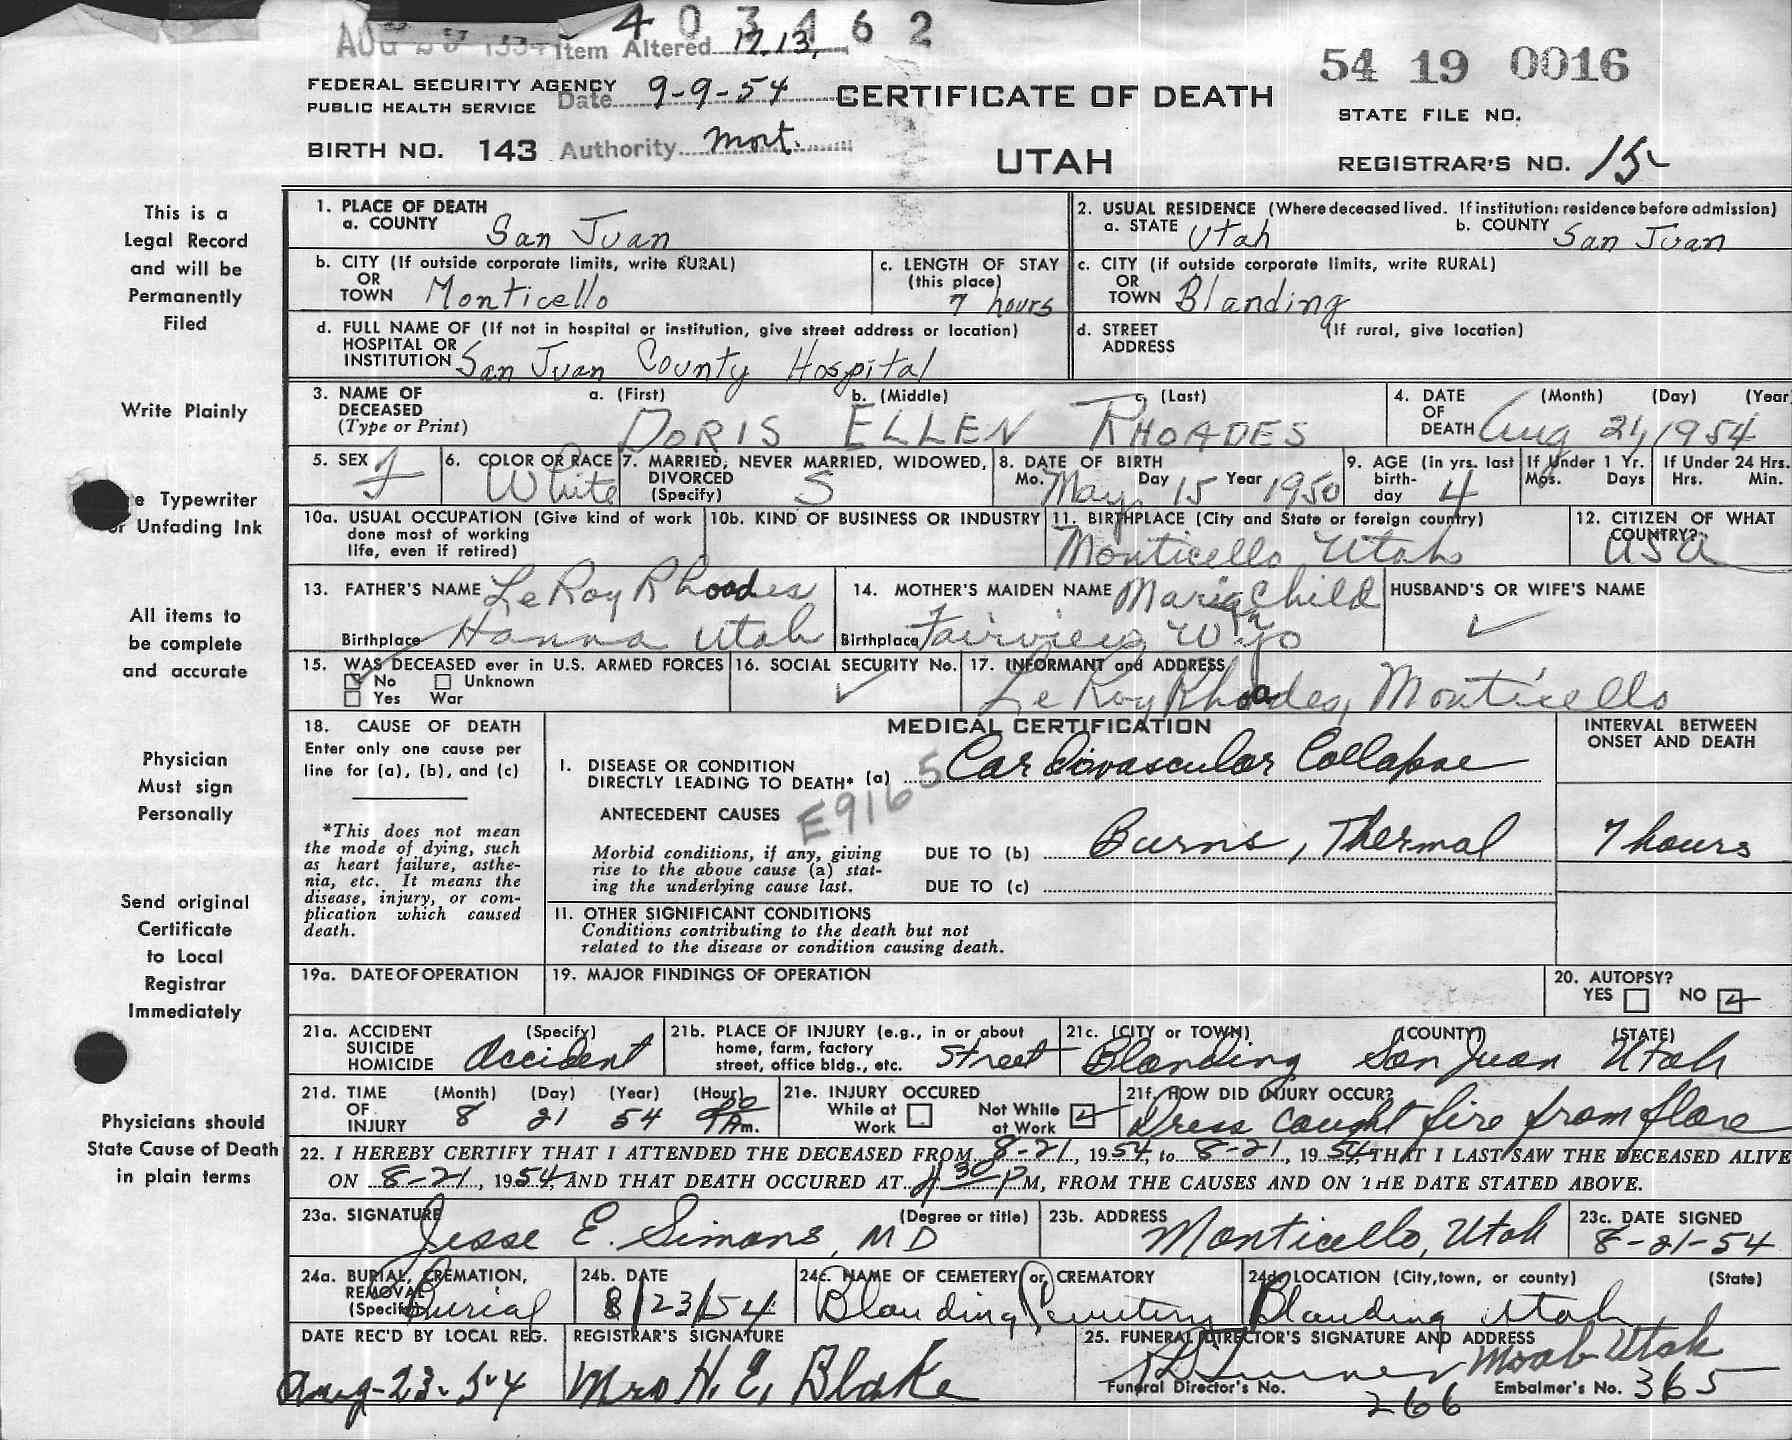 403462
AUG
Item Altered 17, 13,
54 19 0016
FEDERAL SECURITY AGENCY
PUBLIC HEALTH SERVICE
Date 9-9-54
CERTIFICATE OF DEATH
STATE FILE NO.
BIRTH NO. 143 Authority Mort.
UTAH
REGISTRAR'S NO. 15
This is a
Legal Record
and will be
Permanently
Filed
Write Plainly
Typewriter
or Unfading Ink
All items to
be complete
and accurate
Physician
Must sign
Personally
Send original
Certificate
to Local
Registrar
Immediately
Physicians should
State Cause of Death
in plain terms
1. PLACE OF DEATH
a. COUNTY San Juan
2. USUAL RESIDENCE (Where deceased lived. If institution: residence before admission)
a. STATE Utah b. COUNTY San Juan
b. CITY (If outside corporate limits, write RURAL)
OR
TOWN Monticello
c. LENGTH OF STAY
(this place)
7 hours
c. CITY (if outside corporate limits, write RURAL)
OR
TOWN Blanding
d. FULL NAME OF (If not in hospital or institution, give street address or location)
HOSPITAL OR
INSTITUTION San Juan County Hospital
d. STREET (If rural, give location)
ADDRESS
3. NAME OF DECEASED
(Type or Print)
a. (First) b. (Middle) c. (Last)
DORIS ELLEN RHOADES
4. DATE OF DEATH (Month) (Day) (Year
Aug 21, 1954
5. SEX f
6. COLOR OR RACE White
7. MARRIED, NEVER MARRIED, WIDOWED, DIVORCED
(Specify) S
8. DATE OF BIRTH
Mo. May Day 15 Year 1950
9. AGE (in yrs. last birth-day 4
If Under 1 Yr.
Mos. Days
If Under 24 Hrs.
Hrs. Min.
10a. USUAL OCCUPATION (Give kind of work
done most of working
life, even if retired)
10b. KIND OF BUSINESS OR INDUSTRY
11. BIRTHPLACE (City and State or foreign country)
Monticello Utah
12. CITIZEN OF WHAT
COUNTRY?
USA
13. FATHER'S NAME LeRoy Rhoades
Birthplace Hanna Utah
14. MOTHER'S MAIDEN NAME Maria Child
Birthplace Fairview Wyo
HUSBAND'S OR WIFE'S NAME
15. WAS DECEASED ever in U.S. ARMED FORCES
No Unknown
Yes War
16. SOCIAL SECURITY No.
17. INFORMANT and ADDRESS
LeRoy Rhoades, Monticello
18. CAUSE OF DEATH
Enter only one cause per
line for (a), (b), and (c)
*This does not mean
the mode of dying, such
as heart failure, asthe-
nia, etc. It means the
disease, injury, or com-
plication which caused
death.
MEDICAL CERTIFICATION
INTERVAL BETWEEN
ONSET AND DEATH
I. DISEASE OR CONDITION
DIRECTLY LEADING TO DEATH* (a) Cardiovascular Collapse
E916 5
ANTECEDENT CAUSES
Morbid conditions, if any, giving
rise to the above cause (a) stat-
ing the underlying cause last.
DUE TO (b) Burns, Thermal 7 hours
DUE TO (c)
II. OTHER SIGNIFICANT CONDITIONS
Conditions contributing to the death but not
related to the disease or condition causing death.
19a. DATE OF OPERATION
19. MAJOR FINDINGS OF OPERATION
20. AUTOPSY?
YES NO
21a. ACCIDENT (Specify)
SUICIDE
HOMICIDE Accident
21b. PLACE OF INJURY (e.g., in or about
home, farm, factory
street, office bldg., etc. Street
21c. (CITY or TOWN) (COUNTY) (STATE)
Blanding San Juan Utah
21d. TIME OF INJURY (Month) (Day) (Year) (Hour)
8 21 54 9 00 Am.
21e. INJURY OCCURED
While at Work Not While at Work
21f. HOW DID INJURY OCCUR?
Dress caught fire from flare
22. I HEREBY CERTIFY THAT I ATTENDED THE DECEASED FROM 8-21, 1954, to 8-21, 1954, THAT I LAST SAW THE DECEASED ALIVE
ON 8-21, 1954, AND THAT DEATH OCCURED AT 4 30 P M, FROM THE CAUSES AND ON THE DATE STATED ABOVE.
23a. SIGNATURE (Degree or title)
Jesse E. Simons, MD
23b. ADDRESS
Monticello, Utah
23c. DATE SIGNED
8-21-54
24a. BURIAL, CREMATION,
REMOVAL
(Specify) Burial
24b. DATE
8/23/54
24c. NAME OF CEMETERY or CREMATORY
Blanding Cemetery
24d. LOCATION (City, town, or county) (State)
Blanding Utah
DATE REC'D BY LOCAL REG.
Aug-23-54
REGISTRAR'S SIGNATURE
Mrs H. E. Blake
25. FUNERAL DIRECTOR'S SIGNATURE AND ADDRESS
Turner Moab Utah
Funeral Director's No. 266
Embalmer's No. 365